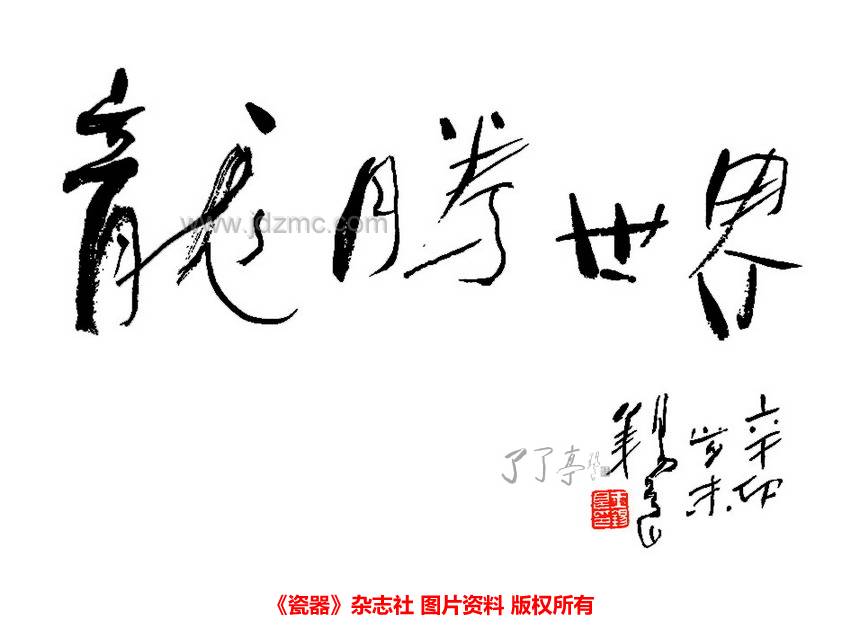 龍腾世界
www.jdzmc.com
辛卯
岁末
了了亭
《瓷器》杂志社 图片资料 版权所有